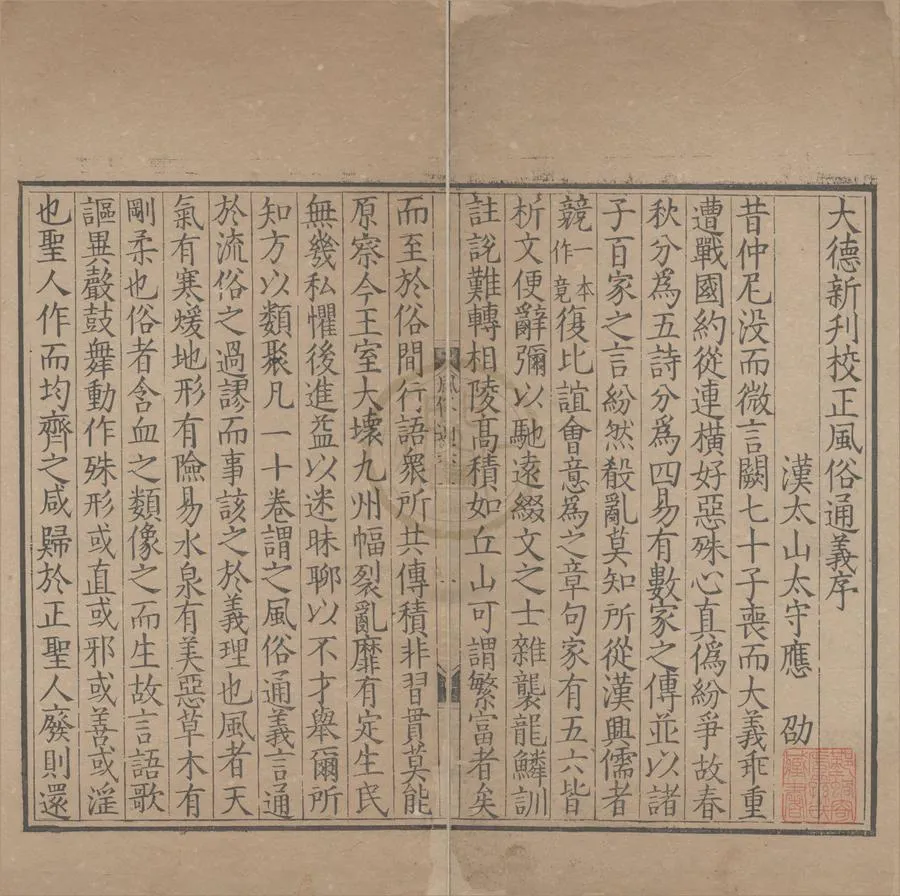 大德新刋校正風俗通義序
漢太山太守應 劭
昔仲尼没而微言闕七十子喪而大義乖重
遭戰國約從連横好惡殊心真僞紛爭故春
秋分爲五詩分爲四易有數家之傳並以諸
子百家之言紛然殽亂莫知所從漢興儒者
競一本作竟復比誼會意爲之章句家有五六皆
析文便辭彌以馳遠綴文之士雜襲龍鱗訓
註說難轉相陵髙積如丘山可謂繁富者矣
而至於俗間行語衆所共傳積非習貫莫能
原察今王室大壞九州幅裂亂靡有定生民
無幾私懼後進益以迷昧聊以不才舉爾所
知方以類聚凡一十卷謂之風俗通義言通
於流俗之過謬而事該之於義理也風者天
氣有寒煖地形有險易水泉有美惡草木有
剛柔也俗者含血之類像之而生故言語歌
謳異聲鼓舞動作殊形或直或邪或善或淫
也聖人作而均齊之咸歸於正聖人廢則還